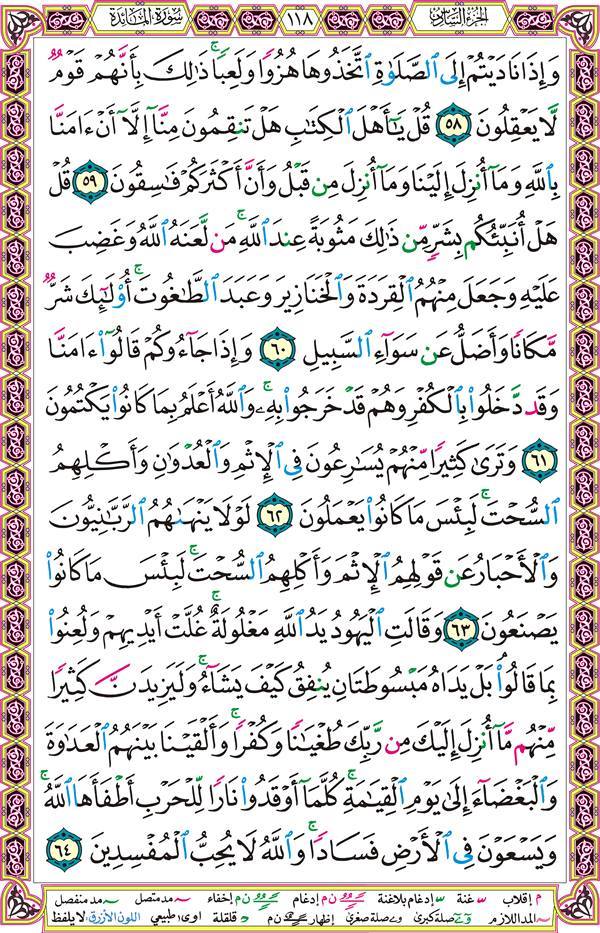 الجزء السادس ١١٨ سورة المائدة
وَإِذَا نَادَيْتُمْ إِلَى ٱلصَّلَوٰةِ ٱتَّخَذُوهَا هُزُوًا وَلَعِبًا ۚ ذَٰلِكَ بِأَنَّهُمْ قَوْمٌ
لَّا يَعْقِلُونَ ٥٨ قُلْ يَٰٓأَهْلَ ٱلْكِتَٰبِ هَلْ تَنقِمُونَ مِنَّآ إِلَّآ أَنْ ءَامَنَّا
بِٱللَّهِ وَمَآ أُنزِلَ إِلَيْنَا وَمَآ أُنزِلَ مِن قَبْلُ وَأَنَّ أَكْثَرَكُمْ فَٰسِقُونَ ٥٩ قُلْ
هَلْ أُنَبِّئُكُم بِشَرٍّ مِّن ذَٰلِكَ مَثُوبَةً عِندَ ٱللَّهِ ۚ مَن لَّعَنَهُ ٱللَّهُ وَغَضِبَ
عَلَيْهِ وَجَعَلَ مِنْهُمُ ٱلْقِرَدَةَ وَٱلْخَنَازِيرَ وَعَبَدَ ٱلطَّٰغُوتَ ۚ أُو۟لَٰٓئِكَ شَرٌّ
مَّكَانًا وَأَضَلُّ عَن سَوَآءِ ٱلسَّبِيلِ ٦٠ وَإِذَا جَآءُوكُمْ قَالُوٓا۟ ءَامَنَّا
وَقَد دَّخَلُوا۟ بِٱلْكُفْرِ وَهُمْ قَدْ خَرَجُوا۟ بِهِۦ ۚ وَٱللَّهُ أَعْلَمُ بِمَا كَانُوا۟ يَكْتُمُونَ
٦١ وَتَرَىٰ كَثِيرًا مِّنْهُمْ يُسَٰرِعُونَ فِى ٱلْإِثْمِ وَٱلْعُدْوَٰنِ وَأَكْلِهِمُ
ٱلسُّحْتَ ۚ لَبِئْسَ مَا كَانُوا۟ يَعْمَلُونَ ٦٢ لَوْلَا يَنْهَىٰهُمُ ٱلرَّبَّٰنِيُّونَ
وَٱلْأَحْبَارُ عَن قَوْلِهِمُ ٱلْإِثْمَ وَأَكْلِهِمُ ٱلسُّحْتَ ۚ لَبِئْسَ مَا كَانُوا۟
يَصْنَعُونَ ٦٣ وَقَالَتِ ٱلْيَهُودُ يَدُ ٱللَّهِ مَغْلُولَةٌ ۚ غُلَّتْ أَيْدِيهِمْ وَلُعِنُوا۟
بِمَا قَالُوا۟ ۘ بَلْ يَدَاهُ مَبْسُوطَتَانِ يُنفِقُ كَيْفَ يَشَآءُ ۚ وَلَيَزِيدَنَّ كَثِيرًا
مِّنْهُم مَّآ أُنزِلَ إِلَيْكَ مِن رَّبِّكَ طُغْيَٰنًا وَكُفْرًا ۚ وَأَلْقَيْنَا بَيْنَهُمُ ٱلْعَدَٰوَةَ
وَٱلْبَغْضَآءَ إِلَىٰ يَوْمِ ٱلْقِيَٰمَةِ ۚ كُلَّمَآ أَوْقَدُوا۟ نَارًا لِّلْحَرْبِ أَطْفَأَهَا ٱللَّهُ ۚ
وَيَسْعَوْنَ فِى ٱلْأَرْضِ فَسَادًا ۚ وَٱللَّهُ لَا يُحِبُّ ٱلْمُفْسِدِينَ ٦٤
م إقلاب غنة إدغام بلاغنة ن م إدغام ن م إخفاء مد متصل مد منفصل
المد اللازم صلة كبرى صلة صغرى إظهار ن م قلقلة اوى طبيعي اللون الأزرق لا يلفظ